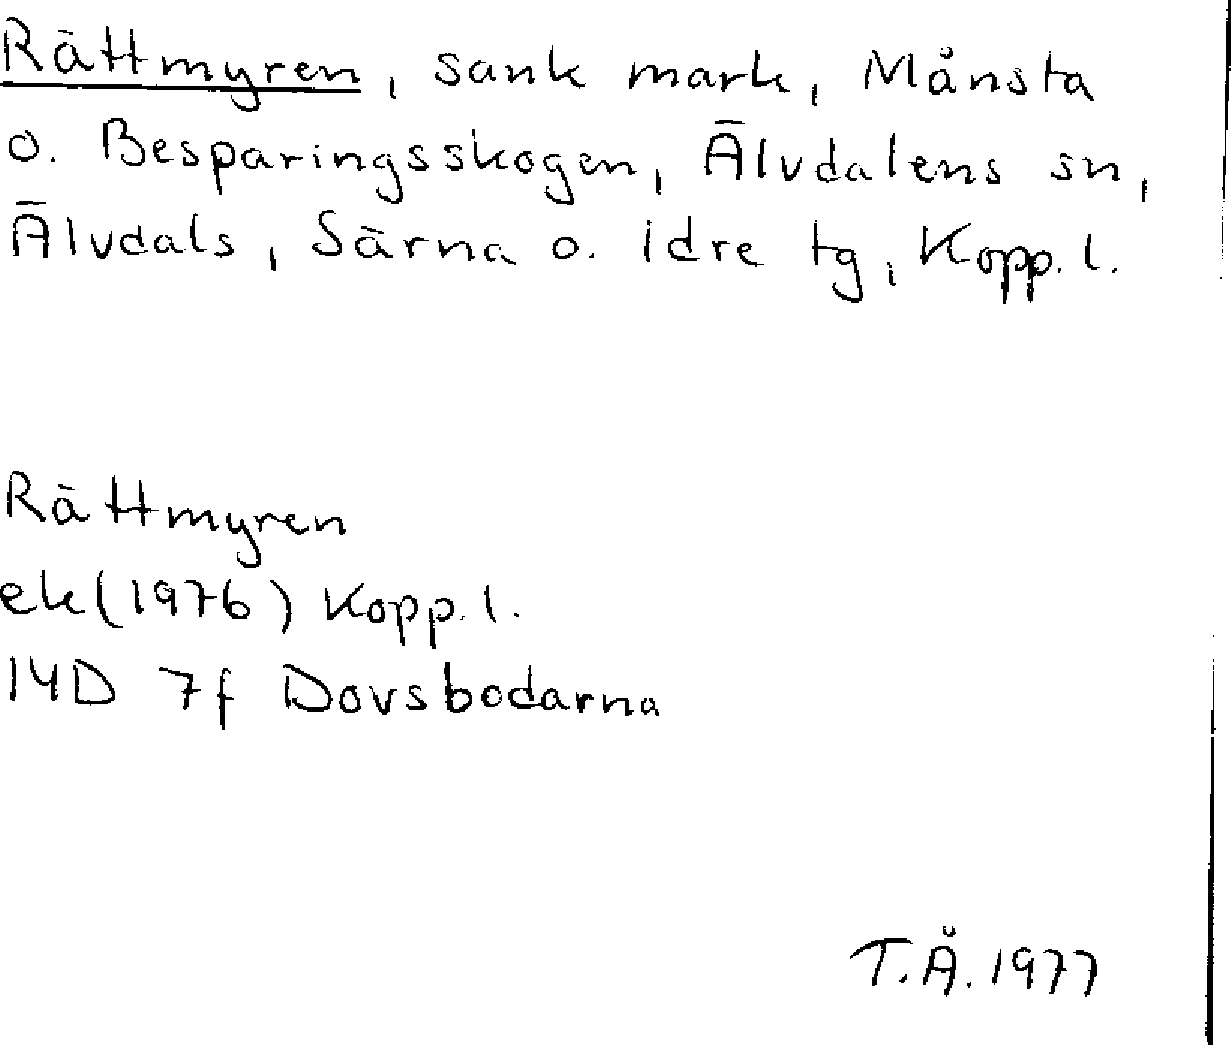 Rättmyren, sank mark, Månsta
o. Besparingsskogen, Älvdalens sn,
Älvdals, Särna o. Idre tg, Kopp. l.
Rättmyren
ek (1976) Kopp. l.
14D 7f Dovsbodarna
T.Å. 1977